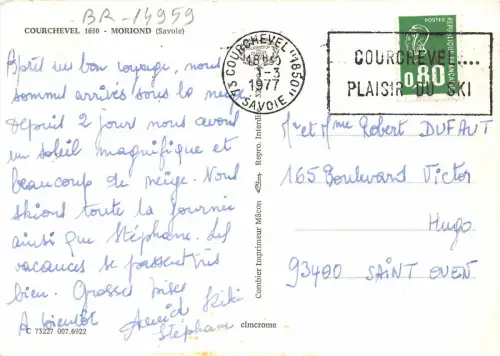 BR-14959
COURCHEVEL 1650 - MORIOND (Savoie)
Après un bon voyage, nous
sommes arrivés sous la neige
depuis 2 jours nous avons
un soleil magnifique et
beaucoup de neige. Nous
skions toute la journée
ainsi que Stéphane. Les
vacances se passent très
bien. Grosses bises
A bientôt
Kiki
Stéphane
C 73227 007.6922
cimcrome
Combier Imprimeur Mâcon
Repro. Interdite
73 COURCHEVEL "1850"
18H30
3-3
1977
SAVOIE
COURCHEVEL....
PLAISIR DU SKI
POSTES
REPUBLIQUE FRANCAISE
0,80
Mr et Mme Robert DUFAUT
165 Boulevard Victor
Hugo
93400 SAINT OUEN